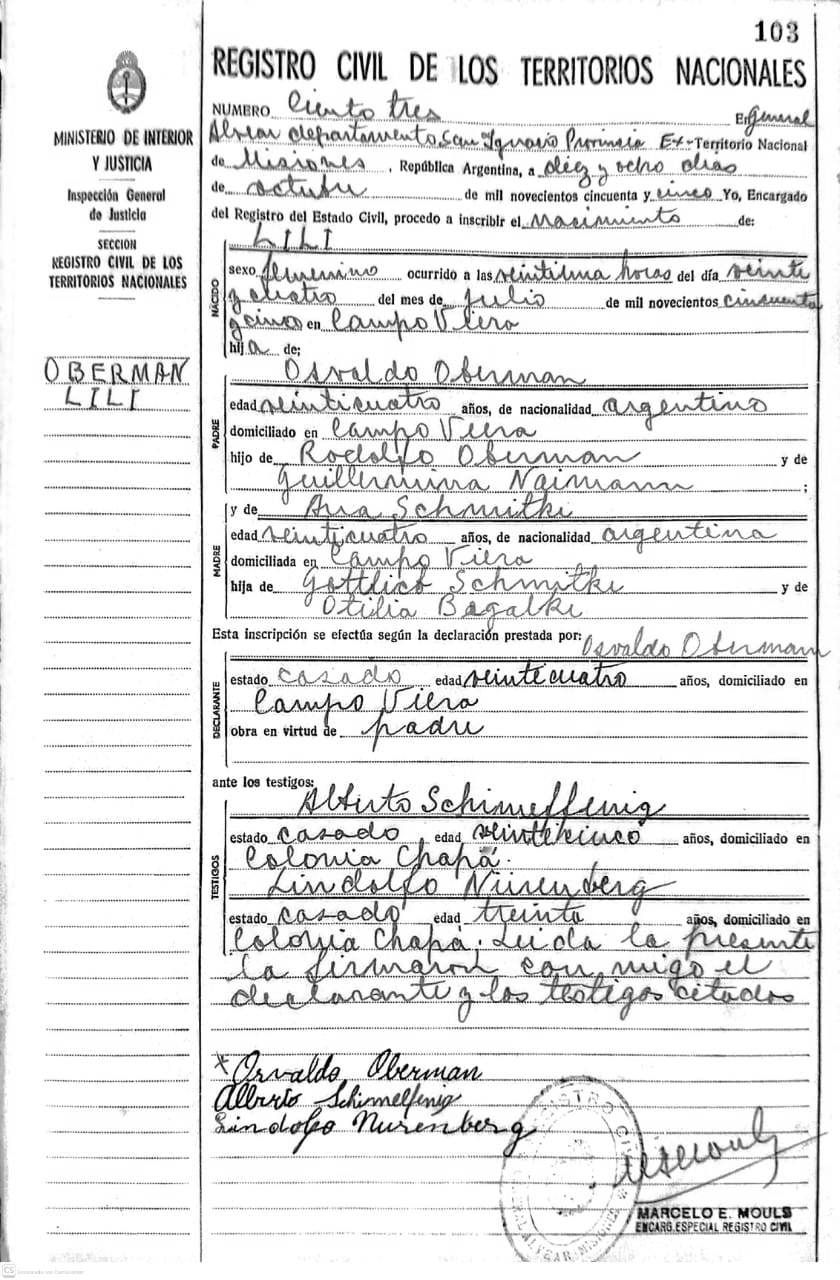 103
REGISTRO CIVIL DE LOS TERRITORIOS NACIONALES
MINISTERIO DE INTERIOR
Y JUSTICIA
Inspección General
de Justicia
SECCION
REGISTRO CIVIL DE LOS
TERRITORIOS NACIONALES
OBERMAN
LILI
NUMERO Ciento tres En General
Alvear departamento San Ignacio Provincia Ex-Territorio Nacional
de Misiones, República Argentina, a diez y ocho dias
de octubre de mil novecientos cincuenta y cinco Yo, Encargado
del Registro del Estado Civil, procedo a inscribir el Nacimiento de:
LILI
NACIDO
sexo femenino ocurrido a las veintiuna horas del día veinte
y cuatro del mes de julio de mil novecientos cincuenta
y cinco en Campo Viera
hija de;
Osvaldo Oberman
PADRE
edad veinticuatro años, de nacionalidad argentino
domiciliado en Campo Viera
hijo de Rodolfo Oberman y de
Guillermina Naimann ;
y de Ana Schmitke
MADRE
edad veinticuatro años, de nacionalidad argentina
domiciliada en Campo Viera
hija de Gottlieb Schmitke y de
Otilia Bagalke
Esta inscripción se efectúa según la declaración prestada por: Osvaldo Oberman
DECLARANTE
estado casado edad veintecuatro años, domiciliado en
Campo Viera
obra en virtud de padre
ante los testigos:
Alberto Schimelfenig
TESTIGOS
estado casado edad veintecinco años, domiciliado en
Colonia Chapá.
Lindolfo Nürenberg
estado casado edad treinta años, domiciliado en
Colonia Chapá. Leida la presente
la firmaron con migo el
declarante y los testigos citados
Osvaldo Oberman
Alberto Schimelfenig
Lindolfo Nurenberg
MARCELO E. MOULS
ENCARG. ESPECIAL REGISTRO CIVIL
CS